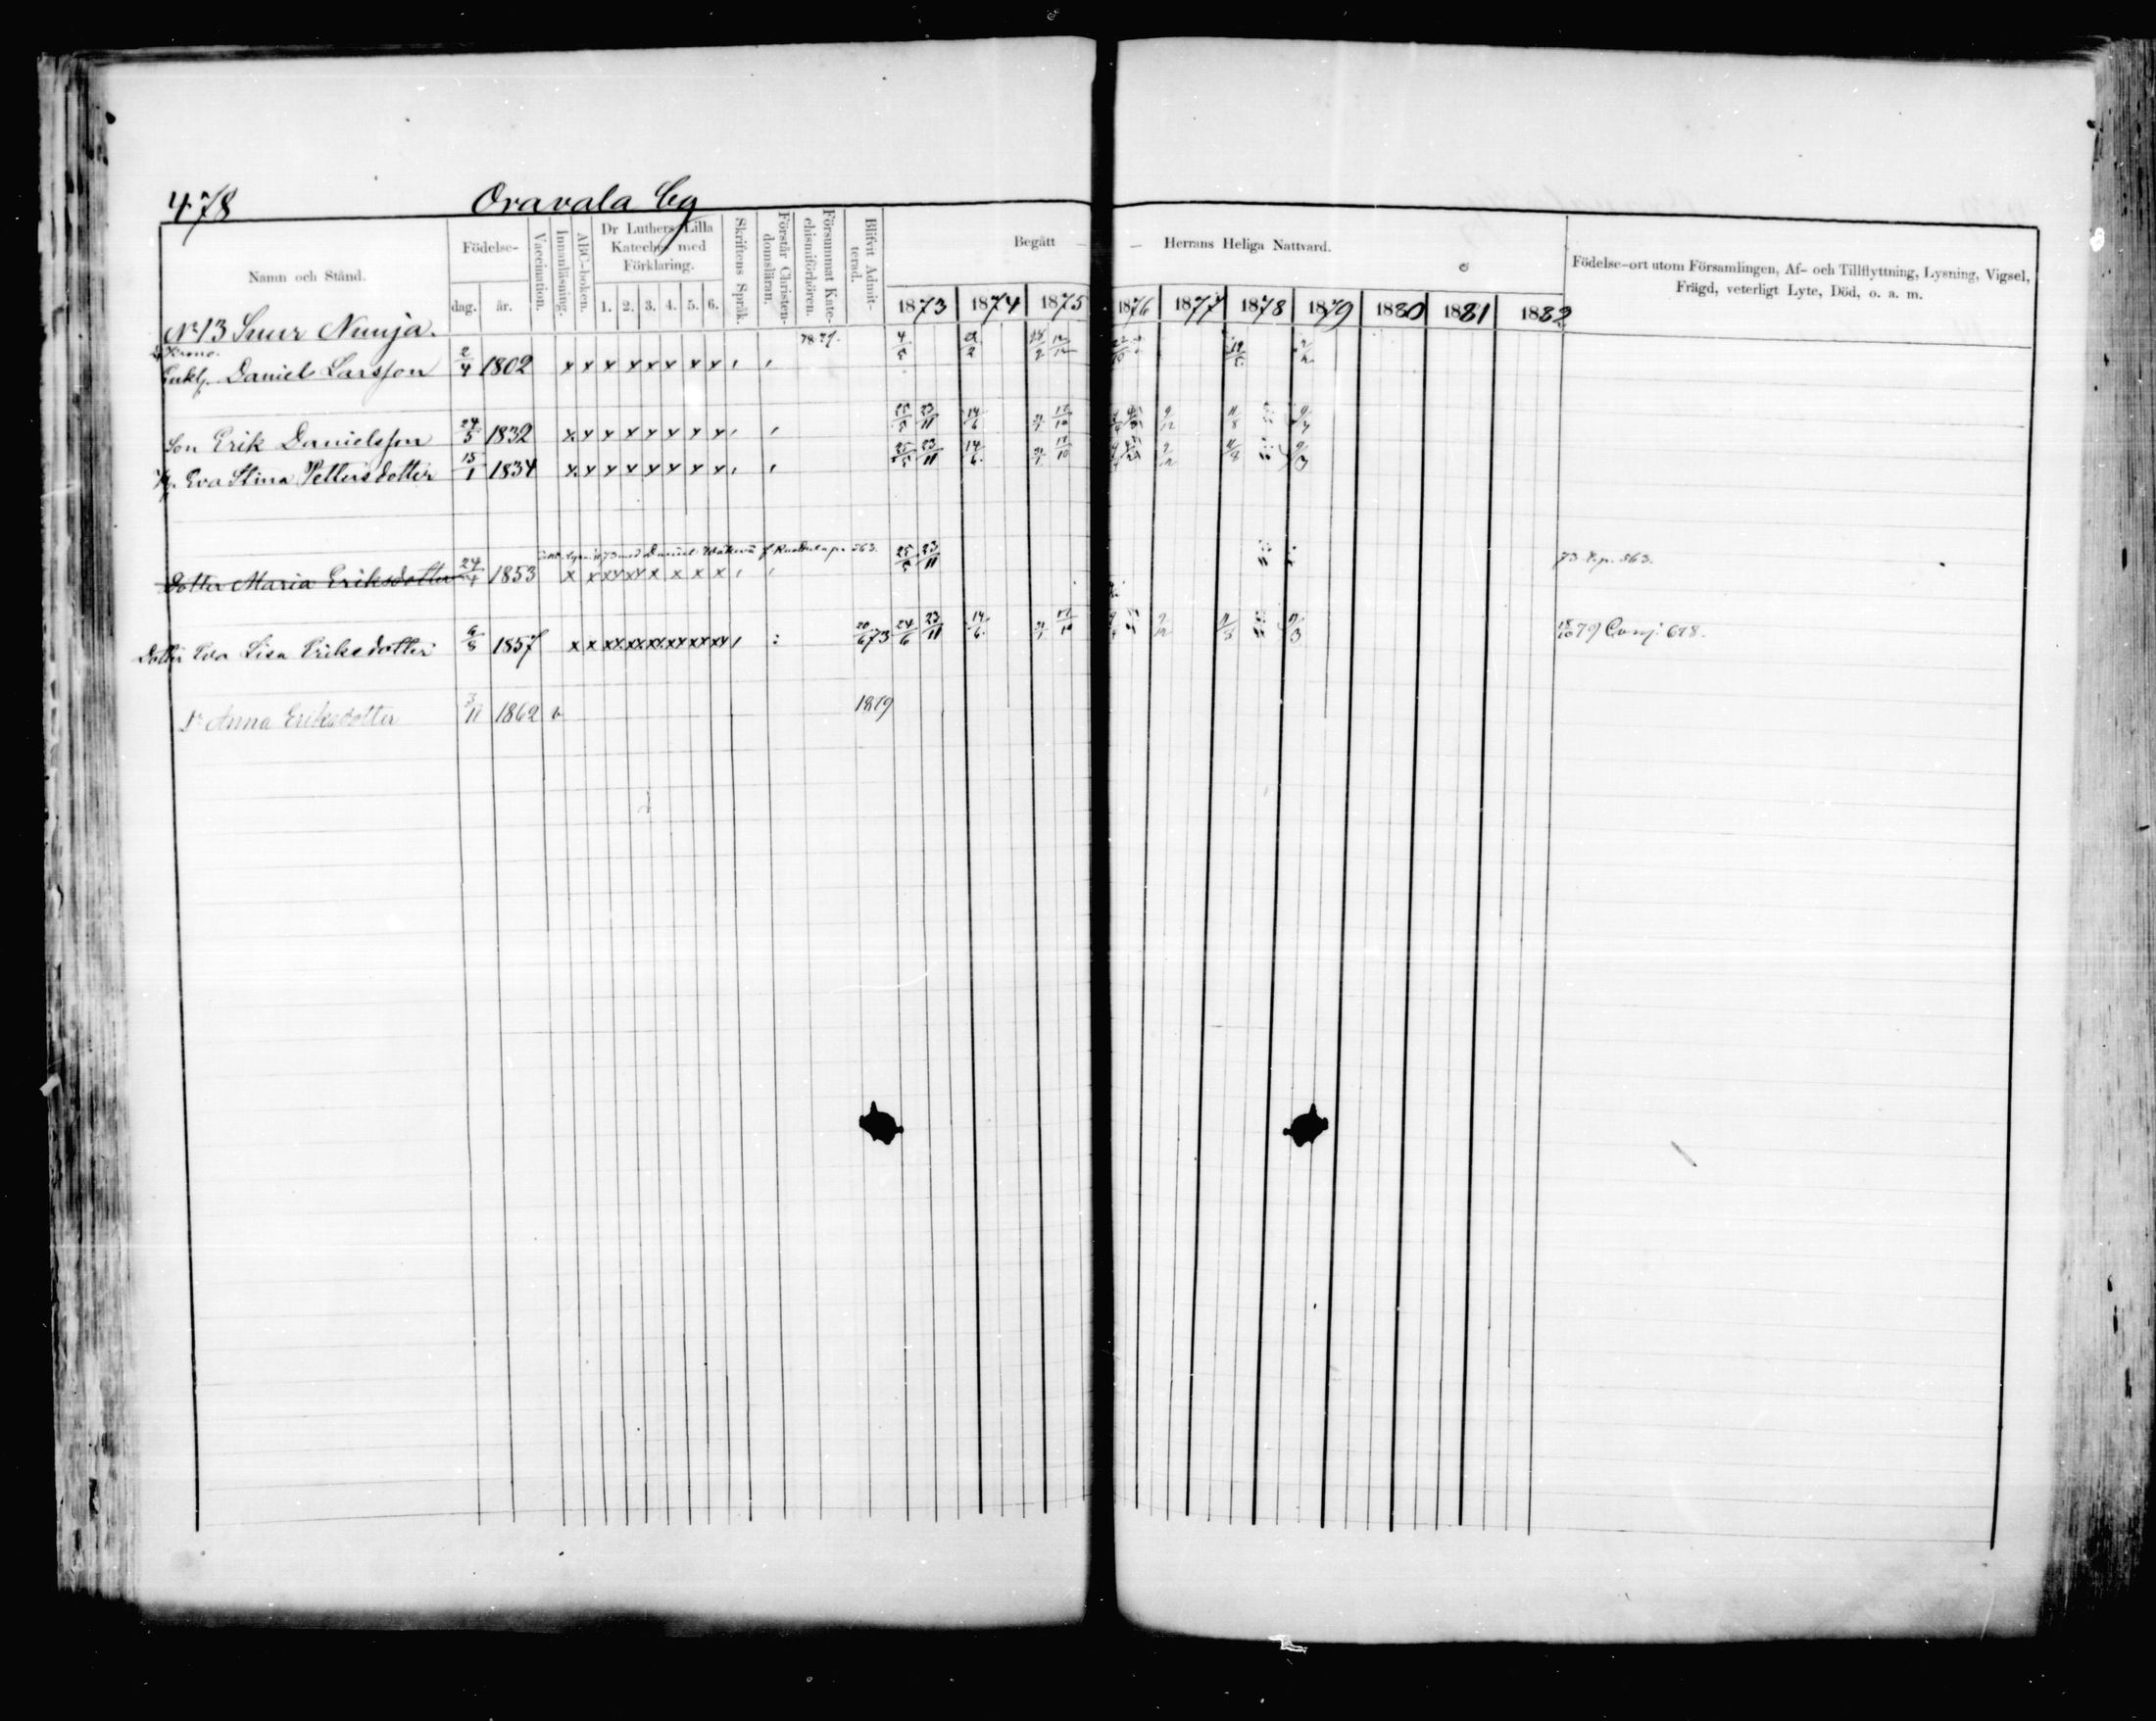 478 Oravala by
Namn och Stånd.
Födelse-
dag. år.
Vaccination.
Innanläsning.
ABC-boken.
Dr Luthers Lilla
Kateches med
Förklaring.
1. 2. 3. 4. 5. 6.
Skriftens Språk.
Förstår Christen-
domsläran.
Försummat Kate-
chismiförhören.
Blifvit Admit-
terad.
Begått — — Herrans Heliga Nattvard.
1873 1874 1875 1876 1877 1878 1879 1880 1881 1882
Födelse-ort utom Församlingen, Af- och Tillflyttning, Lysning, Vigsel,
Frägd, veterligt Lyte, Död, o. a. m.
No 13 Suur Nunja.
Enkl. Daniel Larsson 2/4 1802 x x x x x x x x x
4/5
Son Erik Danielsson 24/5 1832 x x x x x x x x
25/5 23/11 14/6 9/12 11/8
Eva Stina Pettersdotter 15/1 1834 x x x x x x x x
25/5 23/11 14/6 9/12 11/8 9/3
563.
Dotter Maria Eriksdotter 1853 x x xx xx x x x x
25/5 23/11
73 563.
Dotter Eva Lisa Eriksdotter 6/8 1857 x x xx xx xx xx xx xx
20/6 73 24/6 23/11 14/6 9/12 11/8 9/3
79 Conj. 678.
Dr Anna Eriksdotter 3/11 1862 v 1879